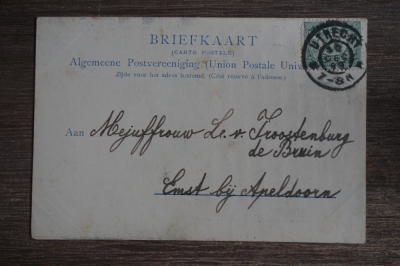 BRIEFKAART
(CARTE POSTALE)
Algemeene Postvereeniging (Union Postale Univ
Zijde voor het adres bestemd. (Côté réservé à l'adresse.)
UTRECHT
7-8N
Aan Mejuffrouw L. v. Troostenburg
de Bruin
Emst bij Apeldoorn